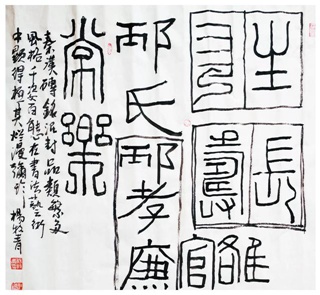 生長
壽官
邴氏邴孝廉
常樂
秦漢磚銘泥封品類繁多
風格千姿百態在書法藝術
中顯得
楊牧青